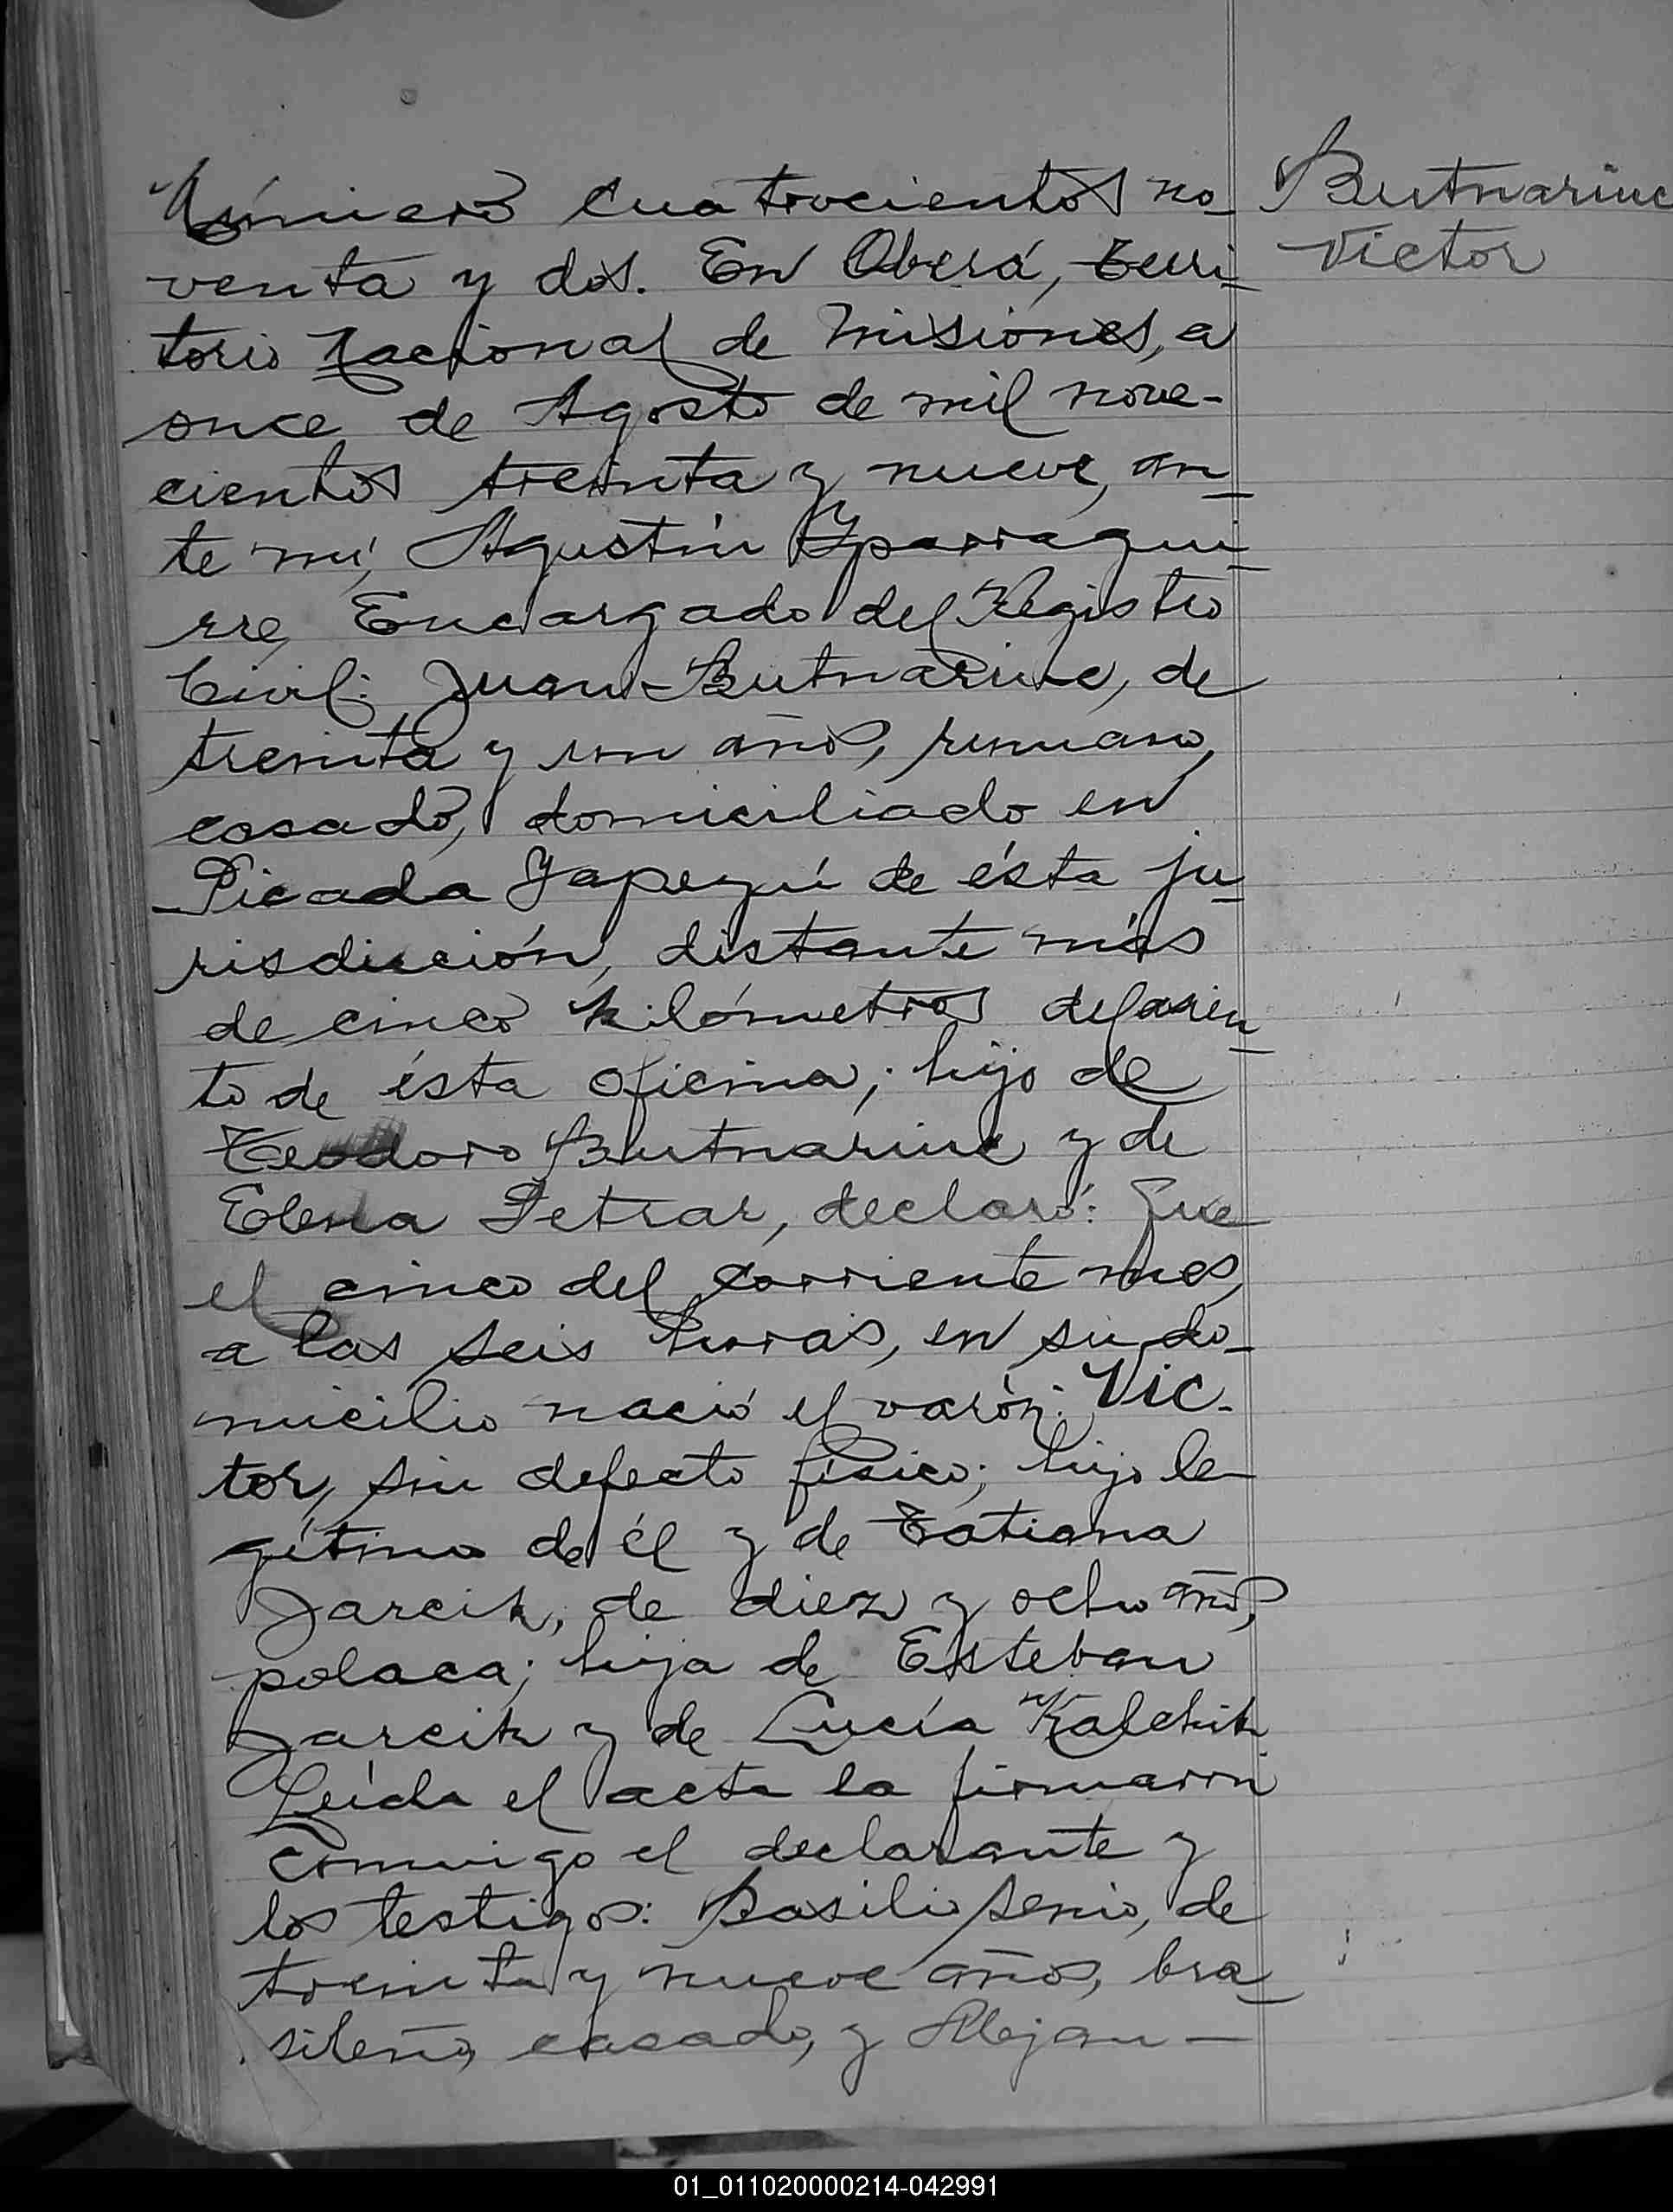 Número cuatrocientos no-
venta y dos. En Oberá, Terri-
torio Nacional de Misiones, a
once de Agosto de mil nove-
cientos treinta y nueve, an-
te mí, Agustín Yparragui-
rre, Encargado del Registro
Civil: Juan Butnariuc, de
treinta y un años, rumano,
casado, domiciliado en
Picada Yapeyú de ésta ju-
risdicción, distante más
de cinco kilómetros del asien-
to de ésta oficina; hijo de
Teodoro Butnariuc y de
Elena Petrar, declaró: Que
el cinco del corriente mes,
a las seis horas, en su do-
micilio nació el varón: Vic-
tor, sin defecto físico; hijo le-
gítimo de él y de Tatiana
Jarcik, de diez y ocho años,
polaca; hija de Esteban
Jarcik y de Lucía Kalchik.
Leída el acta la firmaron
conmigo el declarante y
los testigos: Basilio Senio, de
treinta y nueve años, bra-
sileño, casado, y Alejan-
Butnariuc
Victor
01_011020000214-042991